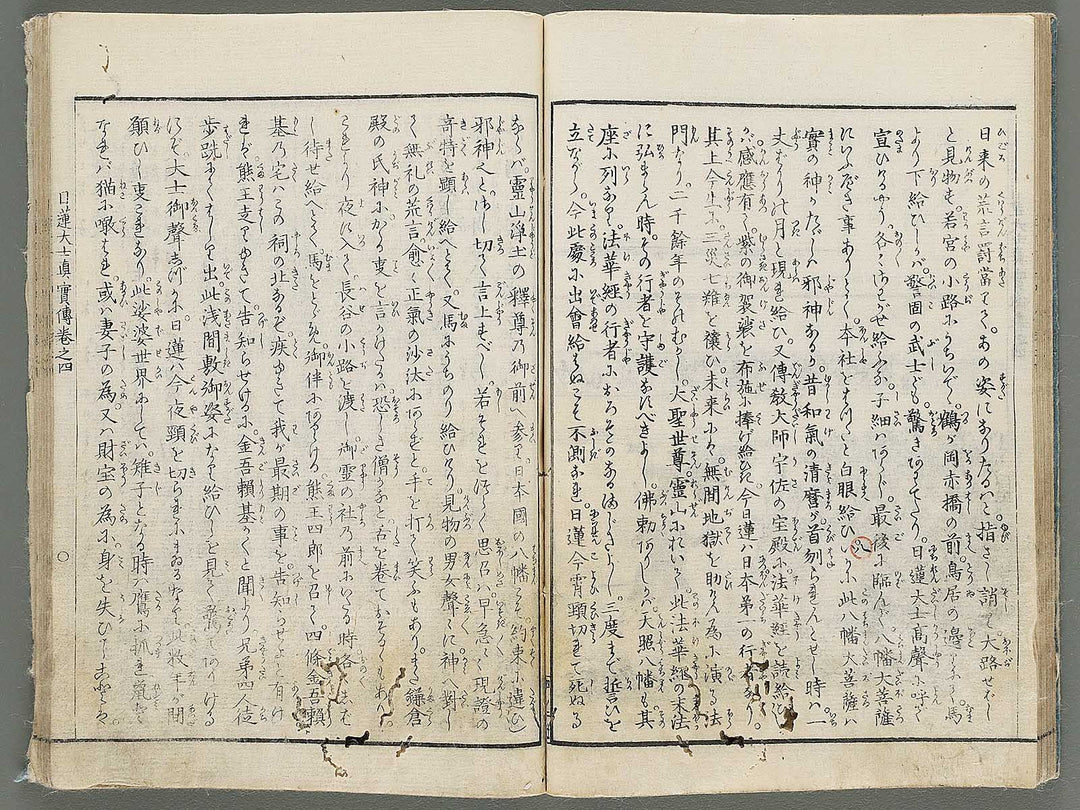 日来の荒言罰當りて。あの姿になりたるハと。指さし誚りて大路せばし
と見物も。若宮の小路にうちいで。鶴が岡赤橋の前。鳥居の邊りにて。馬
より下給ひしバ。警固の武士ども。驚きあわてたり。日蓮大士高聲に呼て
宣ひけるやう。各〻さわがせ給ふな。子細ハあらじ。最後に臨んで八幡大菩薩
にいふべき事ありとて。本社をはつたと白眼給ひ。いかに此八幡大菩薩ハ
實の神か。たゞしハ邪神あるか。昔和氣の清麿が首刎られんとせし時ハ一
丈ばかりの月と現れ給ひ。又傳教大師宇佐の宝殿に法華経を読給ひし
バ。感應有て紫の御袈裟を布施に捧げ給ひき。今日蓮ハ日本第一の行者なり。
其上今生にハ三災七難を禳ひ。未来にハ無間地獄を助んが為に演る法
門なり。二千餘年のそのむかし。大聖世尊霊山にれいて。此法華経の末法
に弘まらん時。その行者を守護なすべきよし。佛勅ありしかバ。天照八幡も其
座に列なり。法華経の行者におろそかある間じきよし。三度まで誓ひを
立ながら。今此處に出會給はぬこそ不測なれ。日蓮今宵頸切れて死ぬる
ならバ。霊山浄土の釋尊の御前へ参り。日本國の八幡こそ。約束に違ひし
邪神へと。さし切て言上すべし。若それを汚しく思召ハ。早急〻現證の
奇特を顕し給へとて。又馬にうちのり給ひけり。見物の男女聲〻に神へ對し
て無礼の荒言愈〻正氣の沙汰にあらずと。手を打て笑ふもあり。また鎌倉
殿の氏神にかゝる事を言かけたるハ恐しき僧かなと舌を巻ておそるゝもあり。
これより夜に入て。長谷の小路を渡し。御霊の社の前にいたる時。各〻しばし
し待せ給へとて。馬をとゞめ。御伴にありける熊王四郎を召て。四條金吾頼
基の宅ハこの祠の北なるぞ。疾ゆきて我が最期の事を告知らせよ。と有け
れバ。熊王走りゆきて告知らせけるに。金吾頼基かくと聞より兄弟四人徒
歩跣にてはしり出。此浅間敷御姿になり給ひしを見て歎てありける
にぞ。大士御聲しづかに日蓮ハ今夜頸を切られにまゐるなり。此数年が間
願ひし事これあり。此娑婆世界にしてハ。雉子となる時ハ鷹に抓れ。鼠と
なれバ猫に噉はれ。或ハ妻子の為。又ハ財宝の為に身を失ひしこと
日蓮大士真實傳巻之四